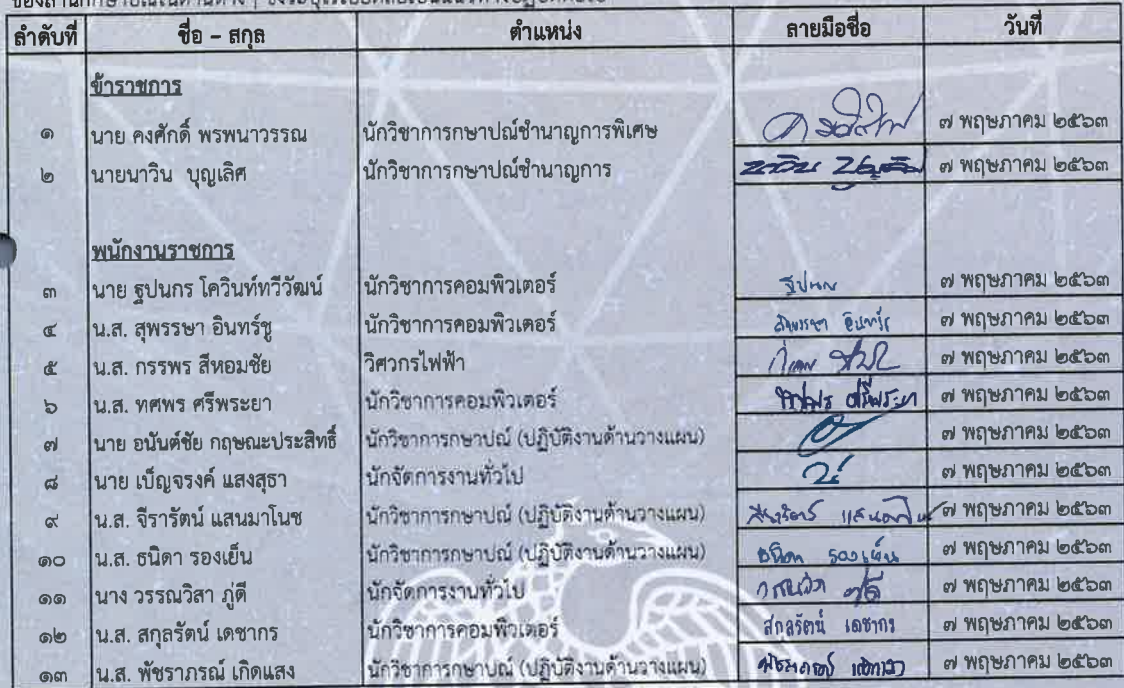 ลำดับที่ ชื่อ – สกุล ตำแหน่ง ลายมือชื่อ วันที่
ข้าราชการ
๑ นาย คงศักดิ์ พรพนาวรรณ นักวิชาการกษาปณ์ชำนาญการพิเศษ ๗ พฤษภาคม ๒๕๖๓
๒ นายนาวิน บุญเลิศ นักวิชาการกษาปณ์ชำนาญการ นาวิน บุญเลิศ ๗ พฤษภาคม ๒๕๖๓
พนักงานราชการ
๓ นาย ฐปนกร โควินท์ทวีวัฒน์ นักวิชาการคอมพิวเตอร์ ฐปนกร ๗ พฤษภาคม ๒๕๖๓
๔ น.ส. สุพรรษา อินทร์ชู นักวิชาการคอมพิวเตอร์ สุพรรษา อินทร์ชู ๗ พฤษภาคม ๒๕๖๓
๕ น.ส. กรรพร สีหอมชัย วิศวกรไฟฟ้า ๗ พฤษภาคม ๒๕๖๓
๖ น.ส. ทศพร ศรีพระยา นักวิชาการคอมพิวเตอร์ ทศพร ศรีพระยา ๗ พฤษภาคม ๒๕๖๓
๗ นาย อนันต์ชัย กฤษณะประสิทธิ์ นักวิชาการกษาปณ์ (ปฏิบัติงานด้านวางแผน) ๗ พฤษภาคม ๒๕๖๓
๘ นาย เบ็ญจรงค์ แสงสุธา นักจัดการงานทั่วไป ๗ พฤษภาคม ๒๕๖๓
๙ น.ส. จีรารัตน์ แสนมาโนช นักวิชาการกษาปณ์ (ปฏิบัติงานด้านวางแผน) ๗ พฤษภาคม ๒๕๖๓
๑๐ น.ส. ธนิดา รองเย็น นักวิชาการกษาปณ์ (ปฏิบัติงานด้านวางแผน) ธนิดา รองเย็น ๗ พฤษภาคม ๒๕๖๓
๑๑ นาง วรรณวิสา ภู่ดี นักจัดการงานทั่วไป ๗ พฤษภาคม ๒๕๖๓
๑๒ น.ส. สกุลรัตน์ เดชากร นักวิชาการคอมพิวเตอร์ สกุลรัตน์ เดชากร ๗ พฤษภาคม ๒๕๖๓
๑๓ น.ส. พัชราภรณ์ เกิดแสง นักวิชาการกษาปณ์ (ปฏิบัติงานด้านวางแผน) ๗ พฤษภาคม ๒๕๖๓